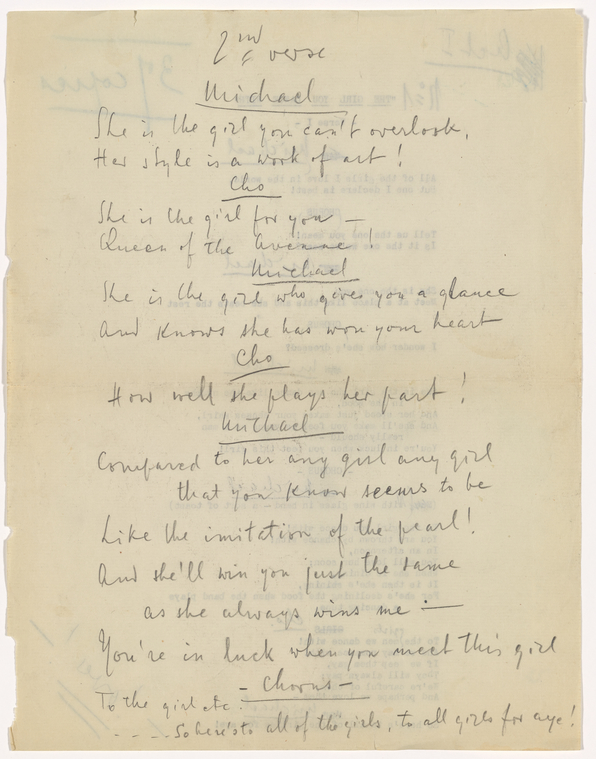 2nd verse
Michael
She is the girl you can't overlook,
Her style is a work of art!
Cho
She is the girl for you —
Queen of the Avenue!
Michael
She is the girl who gives you a glance
And knows she has won your heart
Cho
How well she plays her part!
Michael
Compared to her any girl any girl
that you know seems to be
Like the imitation of the pearl!
And she'll win you just the same
as she always wins me :—
You're in luck when you meet this girl
- Chorus -
To the girl etc.
- - - - So here's to all of the girls, to all girls for aye!